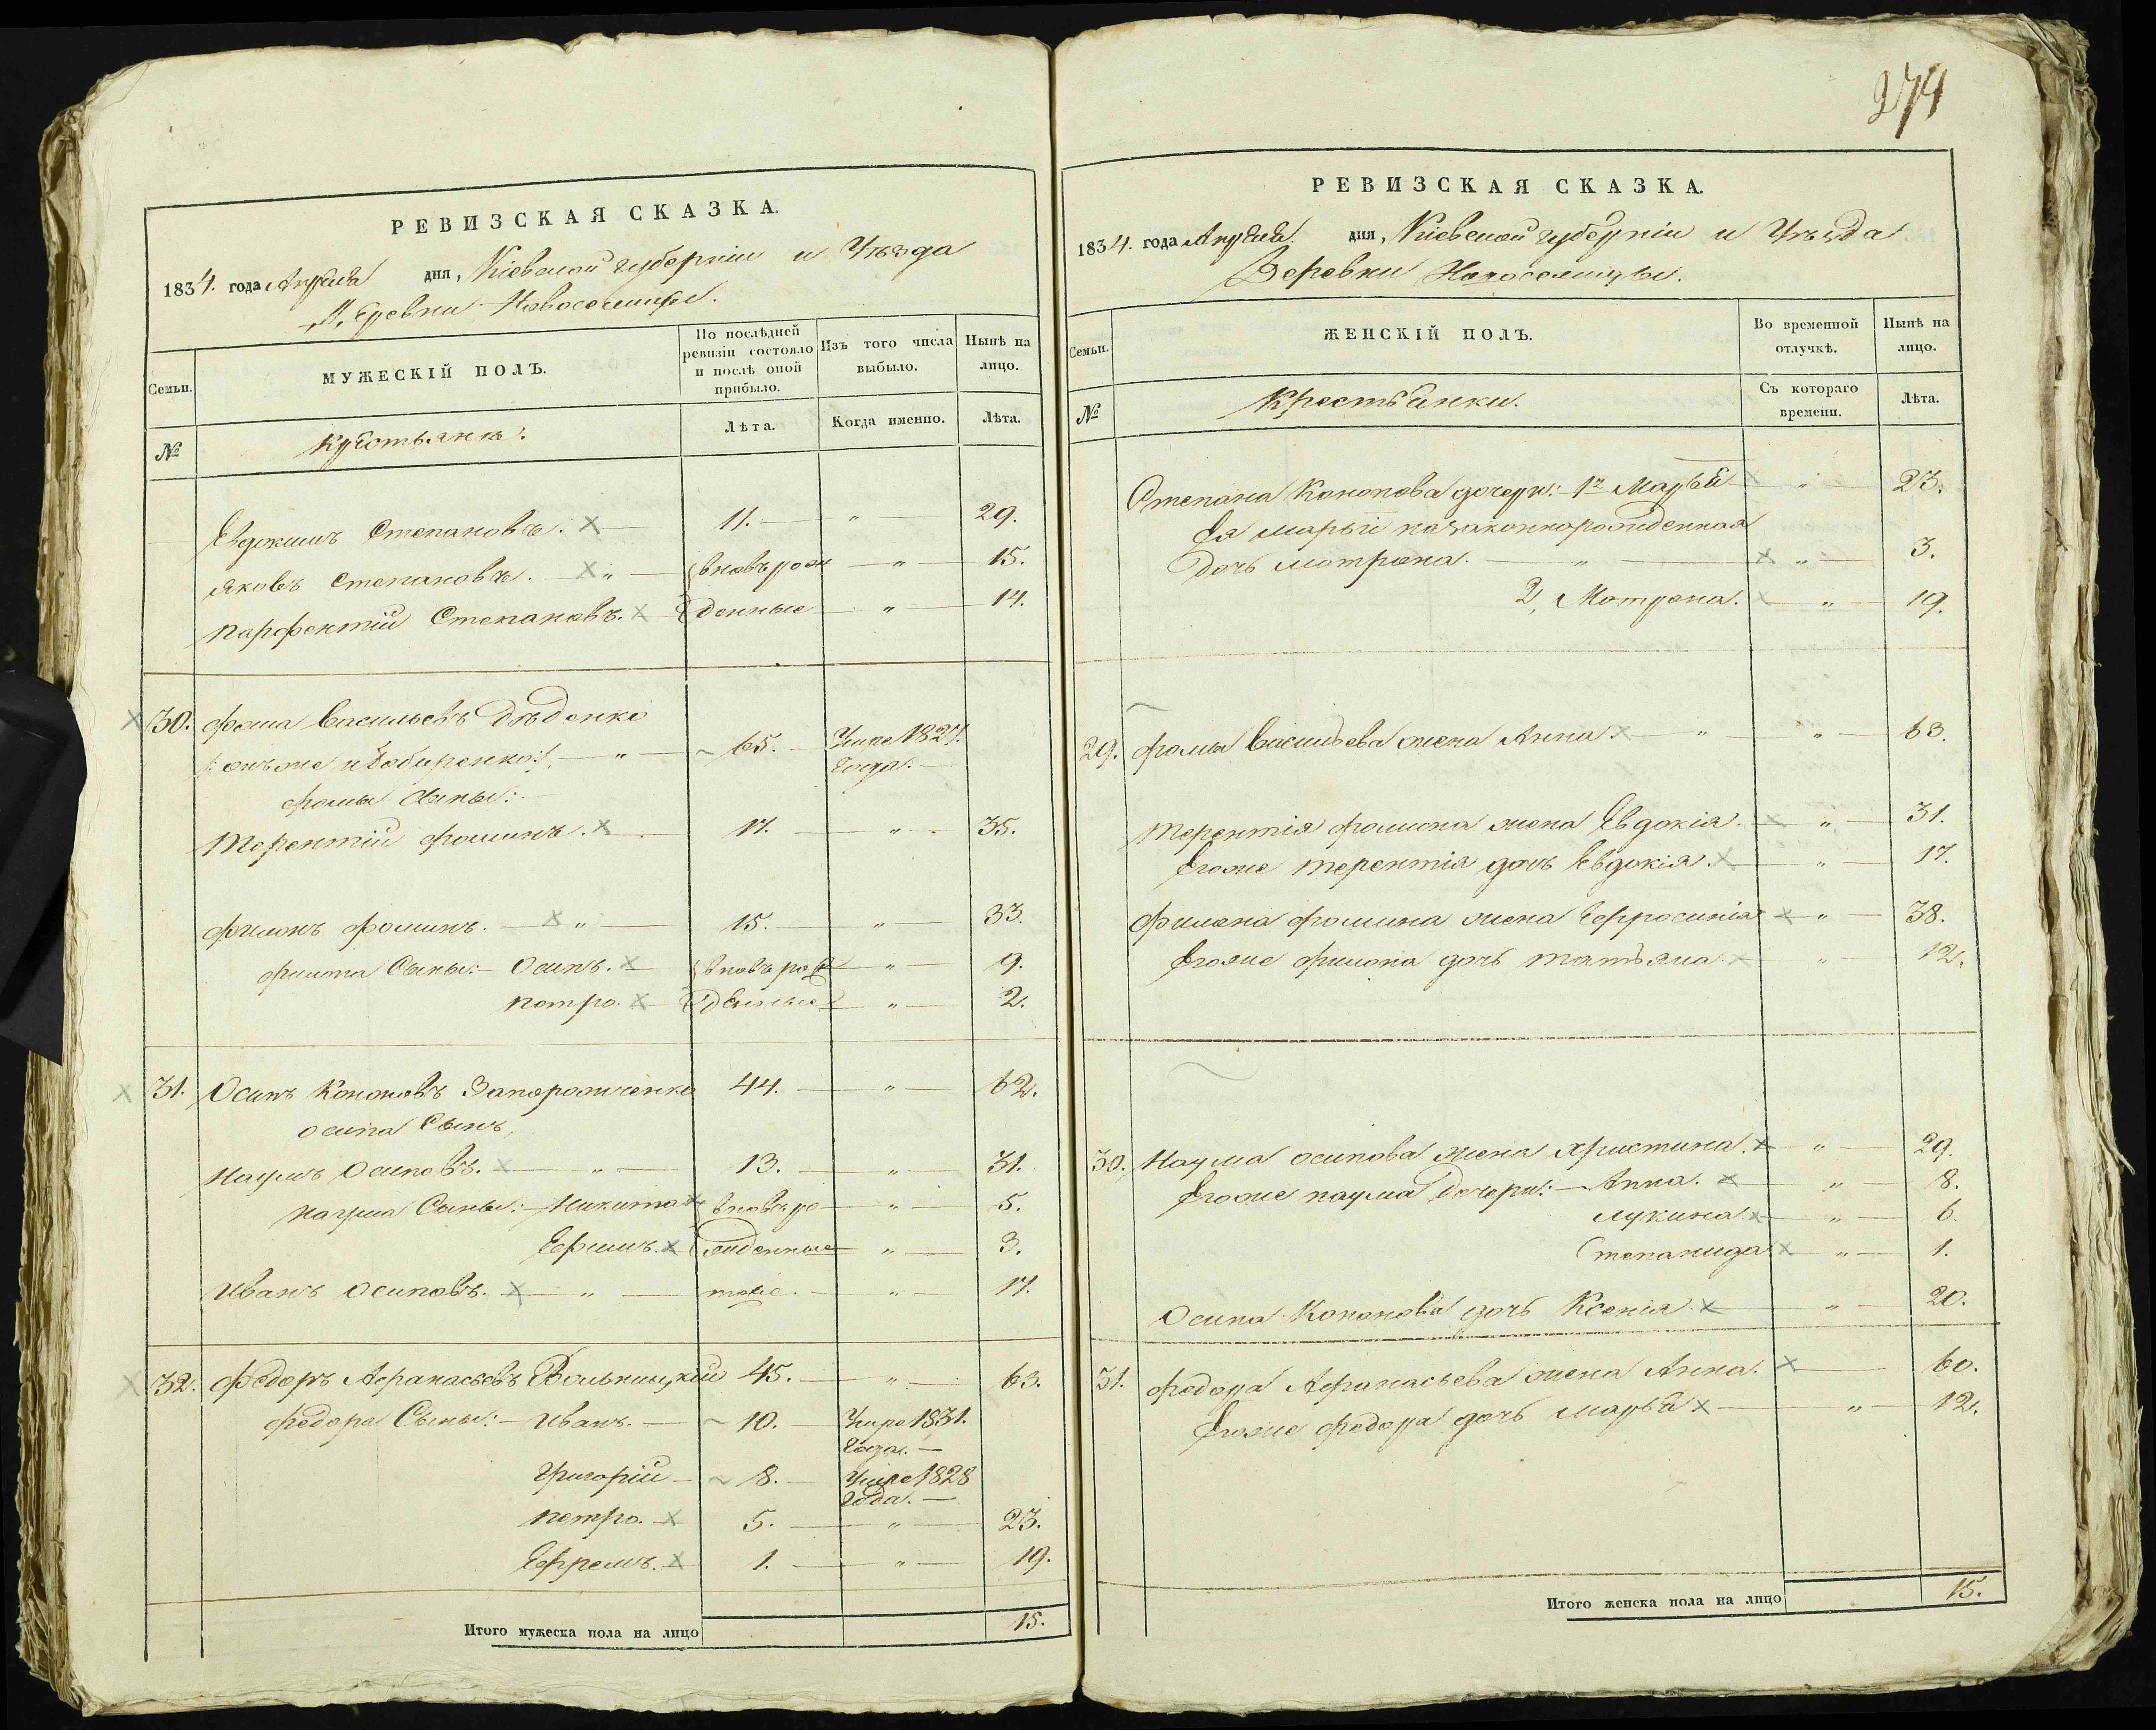 274
РЕВИЗСКАЯ СКАЗКА.
1834. года Апреля дня, Кіевской губерніи и Уѣзда
Деревни Новоселицы.
Семьи.
МУЖЕСКІЙ ПОЛЪ.
По послѣдней ревизіи состояло и послѣ оной прибыло.
Изъ того числа выбыло.
Нынѣ на лицо.
№
Крестьяне.
Лѣта.
Когда именно.
Лѣта.
Евдокимъ Степановъ. 11. " 29.
Яковъ Степановъ. " вновь рож " 15.
Парфентій Степановъ. денные " 14.
30. Фома Васильевъ Дѣденко
онъ же " 65. Умре 1827.
года.
Фомы Сыны:
Терентій Фоминъ. 17. " 35.
Филонъ Фоминъ. " 15. " 33.
Сыны: Осипъ. вновь рож " 9.
Петро. денные " 2.
31. Осипъ Кононовъ Запорожченко 44. " 62.
Осипа Сынъ,
Наумъ Осиповъ. " 13. " 31.
Наума Сыны: Никита вновь ро " 5.
Ефимъ. жденные " 3.
Иванъ Осиповъ. " тоже. " 17.
32. Федоръ Афанасьевъ Вольницкій 45. " 63.
Федора Сыны: Иванъ. 10. Умре 1831.
года.
Григорій 8. Умре 1828
года.
Петро. 5. " 23.
Ефремъ. 1. " 19.
Итого мужеска пола на лицо 15.
РЕВИЗСКАЯ СКАЗКА.
1834. года Апреля дня, Кіевской губерніи и Уѣзда
Деревни Новоселицы.
Семьи.
ЖЕНСКІЙ ПОЛЪ.
Во временной отлучкѣ.
Нынѣ на лицо.
№
Крестьянки.
Съ котораго времени.
Лѣта.
Степана Кононова дочери: 1я Марья " 23.
Ея Марьи незаконнорожденная
дочь Мотрона. " " 3.
2, Мотрона. " 19.
29. Фомы Васильева жена Анна " " 63.
Терентія Фомина жена Евдокія. " 31.
Егоже Терентія дочь Евдокія. " 17.
Филона Фомина жена Ефросинія " 38.
Егоже Филона дочь Татьяна " 12.
30. Наума Осипова жена Христина. " 29.
Егоже Наума дочери: Анна. " 8.
Лукина " 6.
Степанида " 1.
Осипа Кононова дочь Ксенія. " 20.
31. Федора Афанасьева жена Анна. 60.
Егоже Федора дочь Марья " 12.
Итого женска пола на лицо 15.